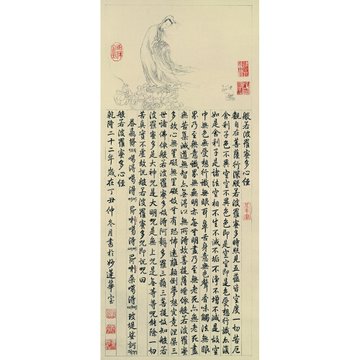 般若波羅蜜多心经
觀自在菩薩行深般若波羅蜜多時照見五蘊皆空度一切苦
舍利子色不異空空不異色色即是空空即是色受想行識亦復
如是舍利子是諸法空相不生不滅不垢不淨不增不減是故空
中無色無受想行識無眼耳鼻舌身意無色聲香味觸法無眼
界乃至無意識界無無明亦無無明盡乃至無老死亦無老死盡
無苦集滅道無智亦無得以無所得故菩提薩埵依般若波羅蜜
多故心無罣礙無罣礙故無有恐怖遠離顛倒夢想究竟涅槃三
世諸佛依般若波羅蜜多故得阿耨多羅三藐三菩提故知般若
波羅蜜多是大神咒是大明咒是無上咒是無等等咒能除一切
苦真實不虛故說般若波羅蜜多咒即說咒曰
般若波羅蜜多心经
乾隆二十二年歲在丁丑仲冬月書於妙蓮華室